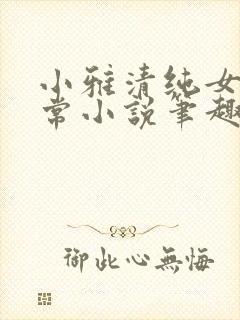 小雅清纯女
常小説筆趣
御此心無悔